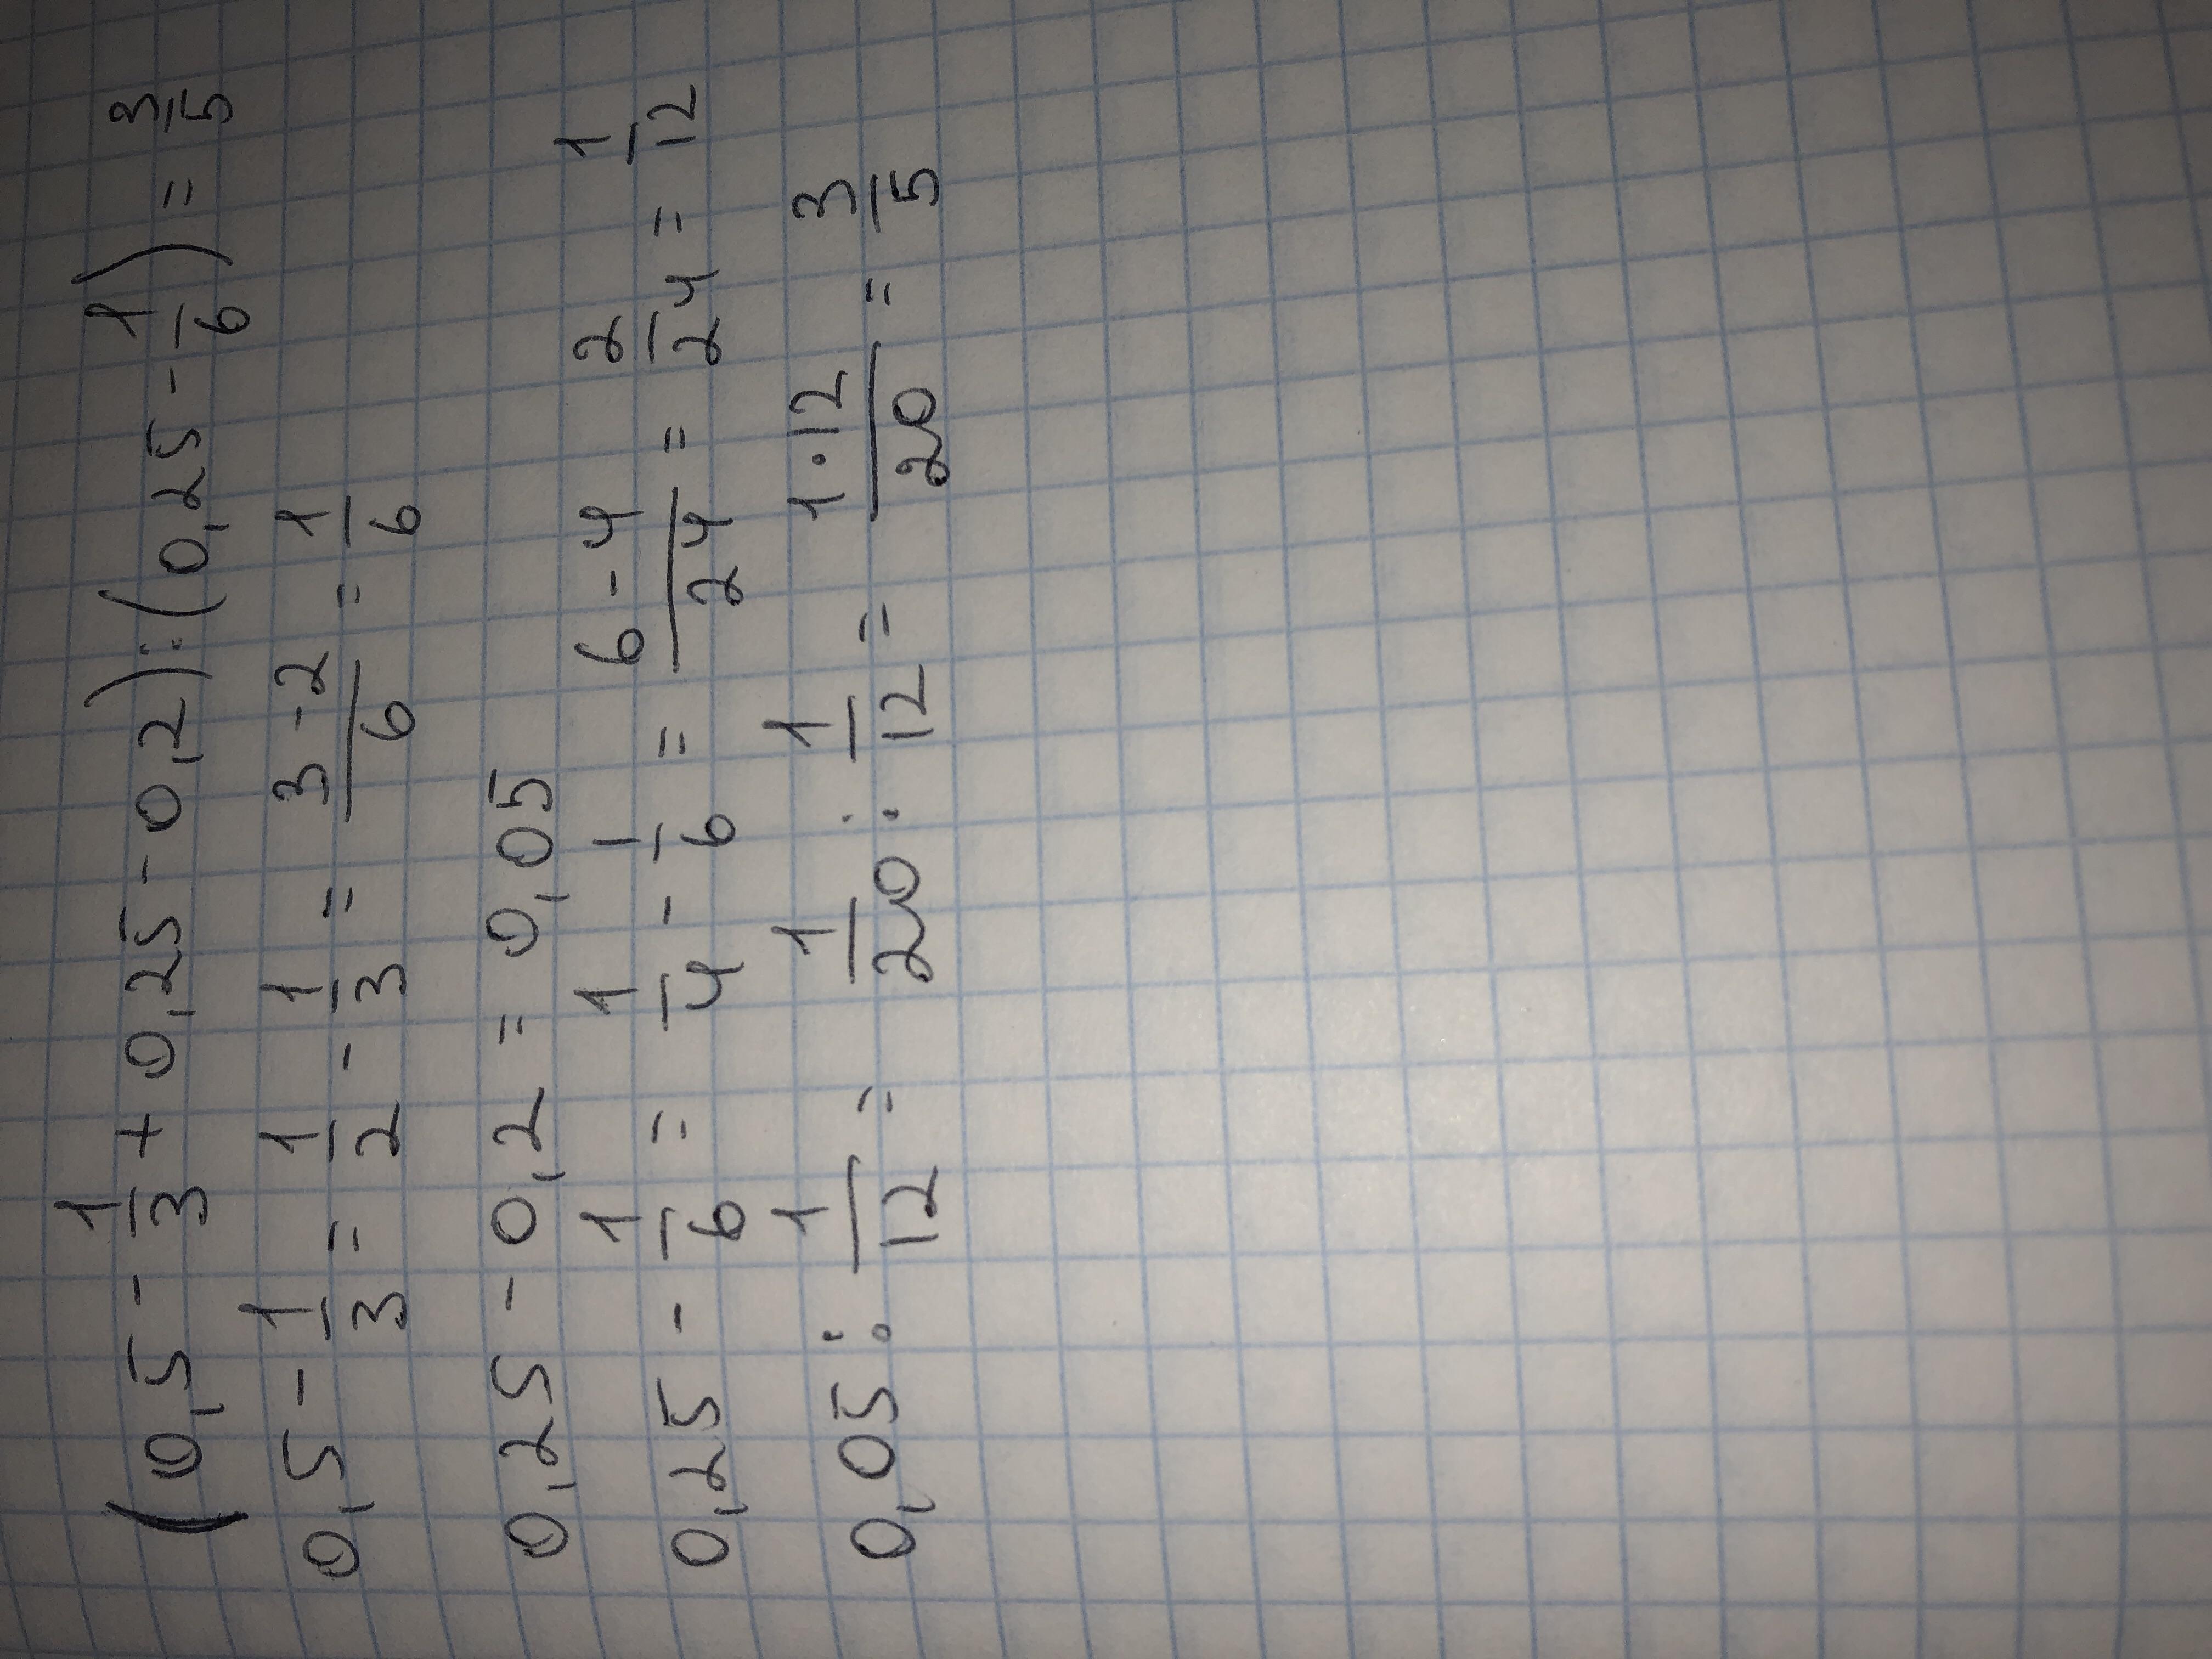 (0,5 - 1/3 + 0,25 - 0,2) : (0,25 - 1/6) = 3/5
0,5 - 1/3 = 1/2 - 1/3 = 3-2/6 = 1/6
0,25 - 0,2 = 0,05
0,25 - 1/6 = 1/4 - 1/6 = 6-4/24 = 2/24 = 1/12
0,05 : 1/12 = 1/20 : 1/12 = 1·12/20 = 3/5